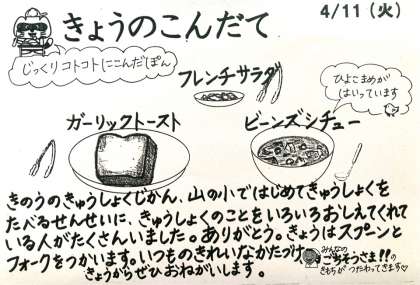 きょうのこんだて
4/11(火)
じっくりコトコトにこんだぽん
フレンチサラダ
ひよこまめが
はいっています
ガーリックトースト
ビーンズシチュー
きのうのきゅうしょくじかん、山の小ではじめてきゅうしょくを
たべるせんせいに、きゅうしょくのことをいろいろおしえてくれて
いる人がたくさんいました。ありがとう。きょうはスプーンと
フォークをつかいます。いつものきれいなかたづけ
きょうからぜひおねがいします。
みんなの
ごちそうさま!!の
きもちがつたわってきます♡